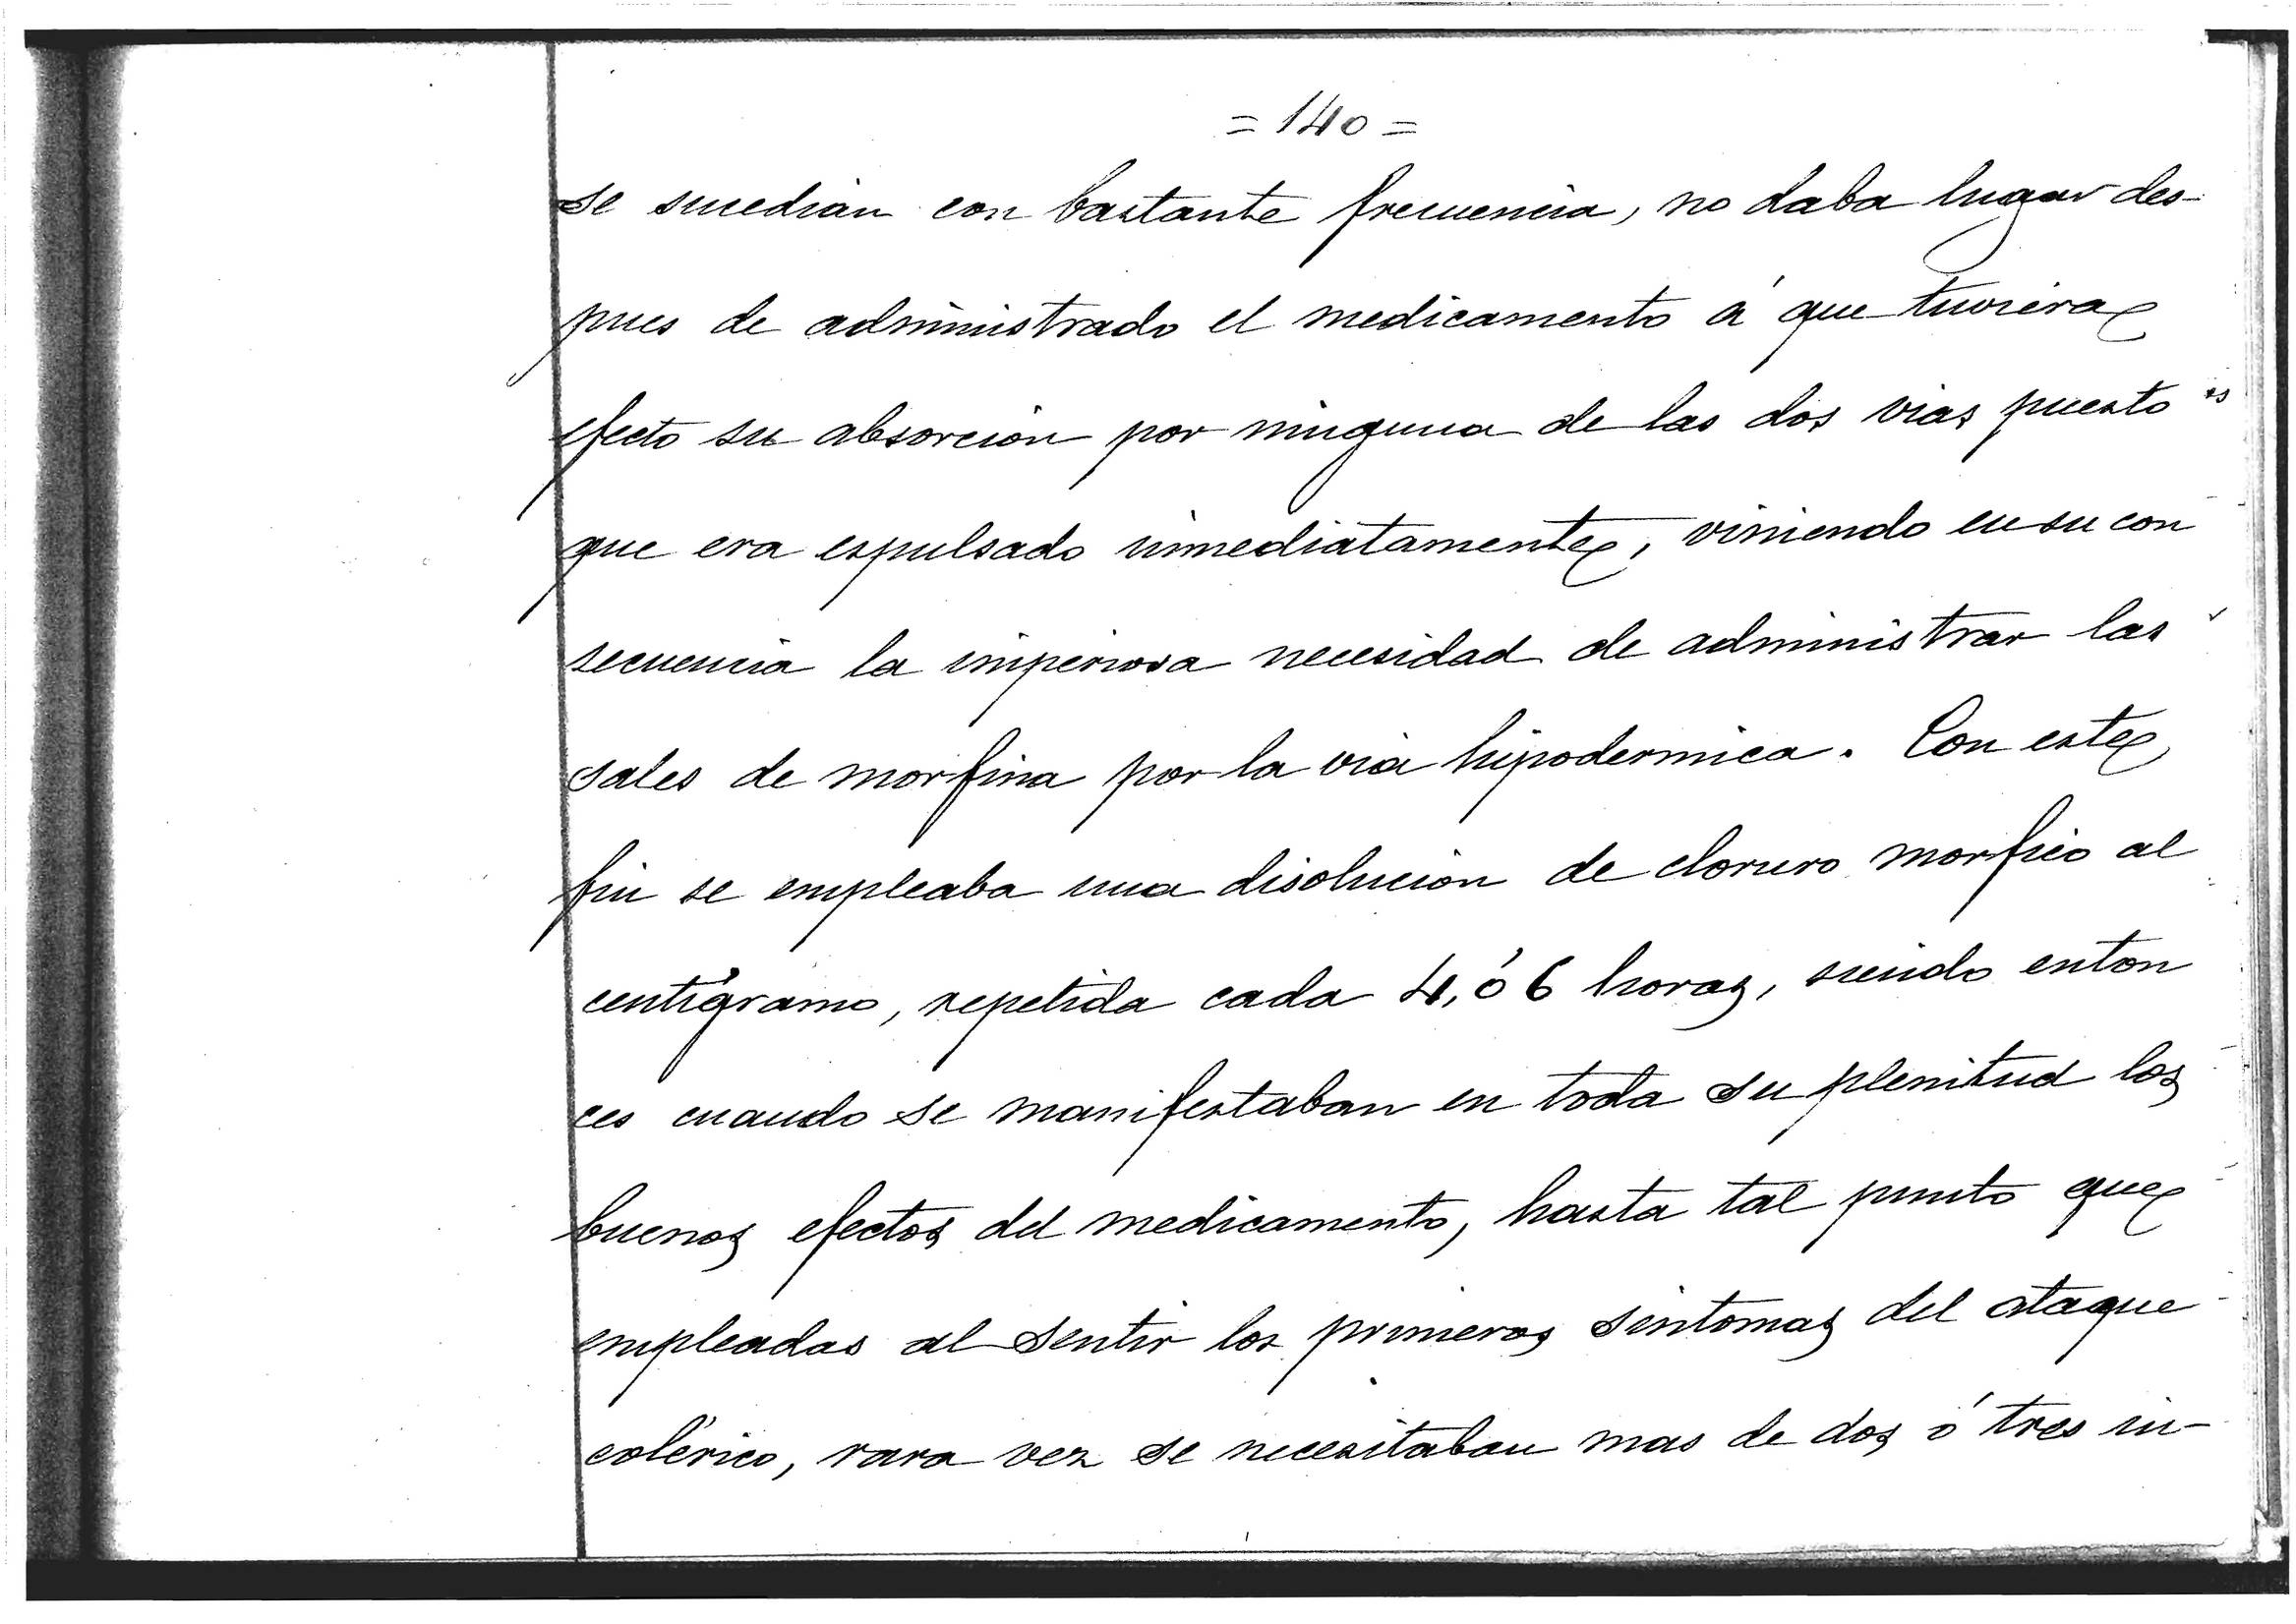 = 140 =
se sucedian con bastante frecuencia, no daba lugar des-
pues de administrado el medicamento á que tuviera
efecto su absorcion por ninguna de las dos vias puesto
que era espulsado inmediatamente, viniendo en su con
secuencia la imperiosa necesidad de administrar las
sales de morfina por la via hipodermica. Con este
fin se empleaba una disolucion de cloruro morfico al
centígramo, repetida cada 4, ó 6 horas, siendo enton
ces cuando se manifestaban en toda su plenitud los
buenos efectos del medicamento, hasta tal punto que
empleadas al sentir los primeros sintomas del ataque
colérico, rara vez se necesitaban mas de dos ó tres in-